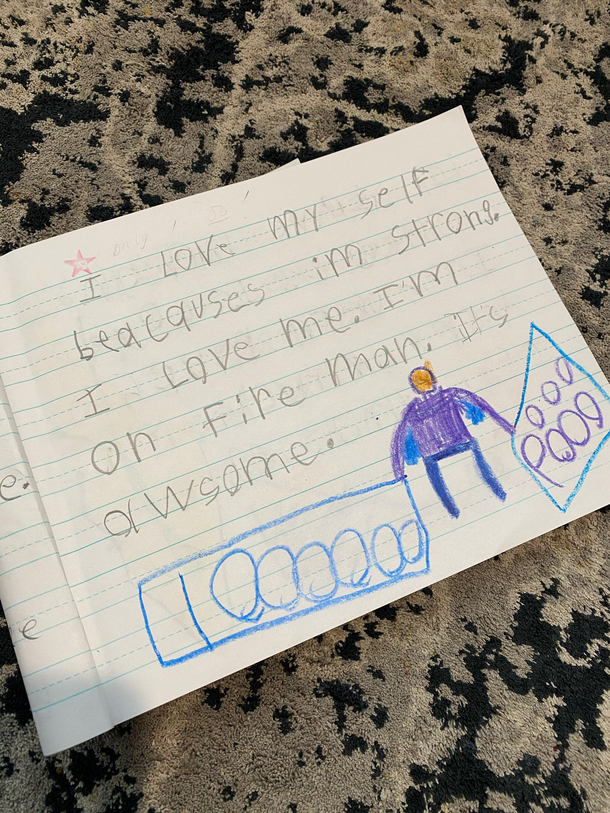 e.
e
I Love my self
beacauses im strong.
I Love me. I'm
on Fire man. It's
awsome.